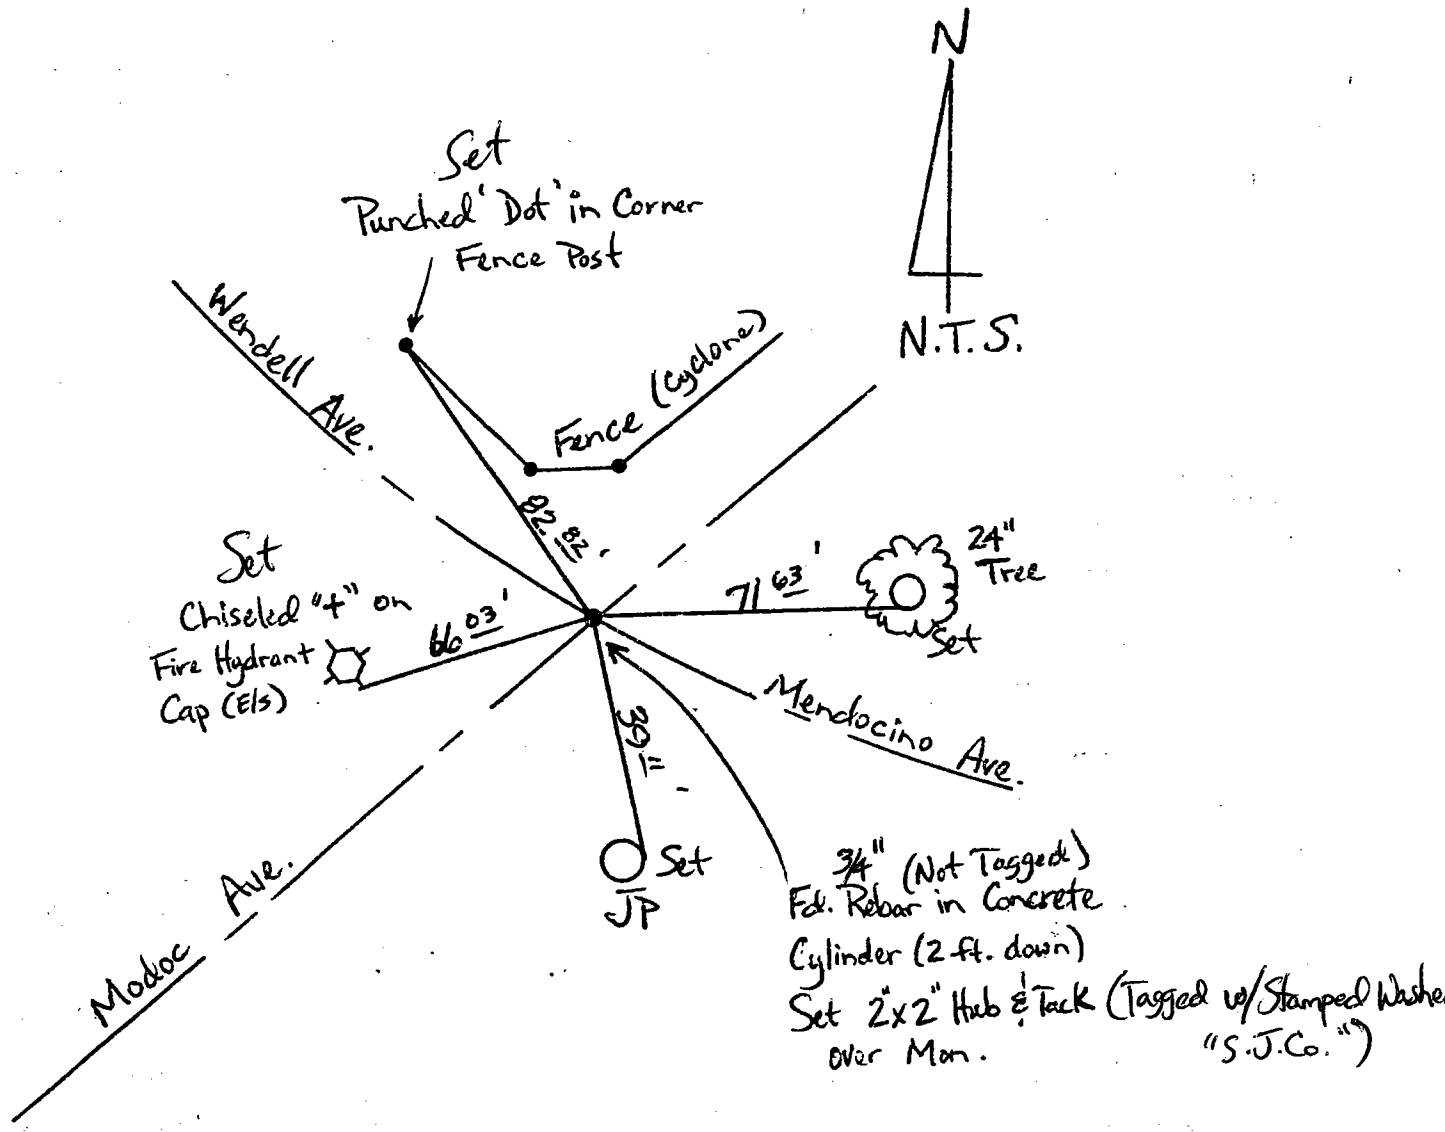 N
N.T.S.
Set
Punched "Dot" in Corner
Fence Post
Wendell Ave.
Fence (Cyclone)
82.82'
Set
Chiseled "+" on
Fire Hydrant
Cap (E/s)
66 03'
71 63'
24"
Tree
Set
Mendocino Ave.
39 11'
Set
JP
Modoc Ave.
3/4" (Not Tagged)
Fd. Rebar in Concrete
Cylinder (2 ft. down)
Set 2"x2" Hub & Tack (Tagged w/Stamped Washer
over Mon. "S.J.Co.")